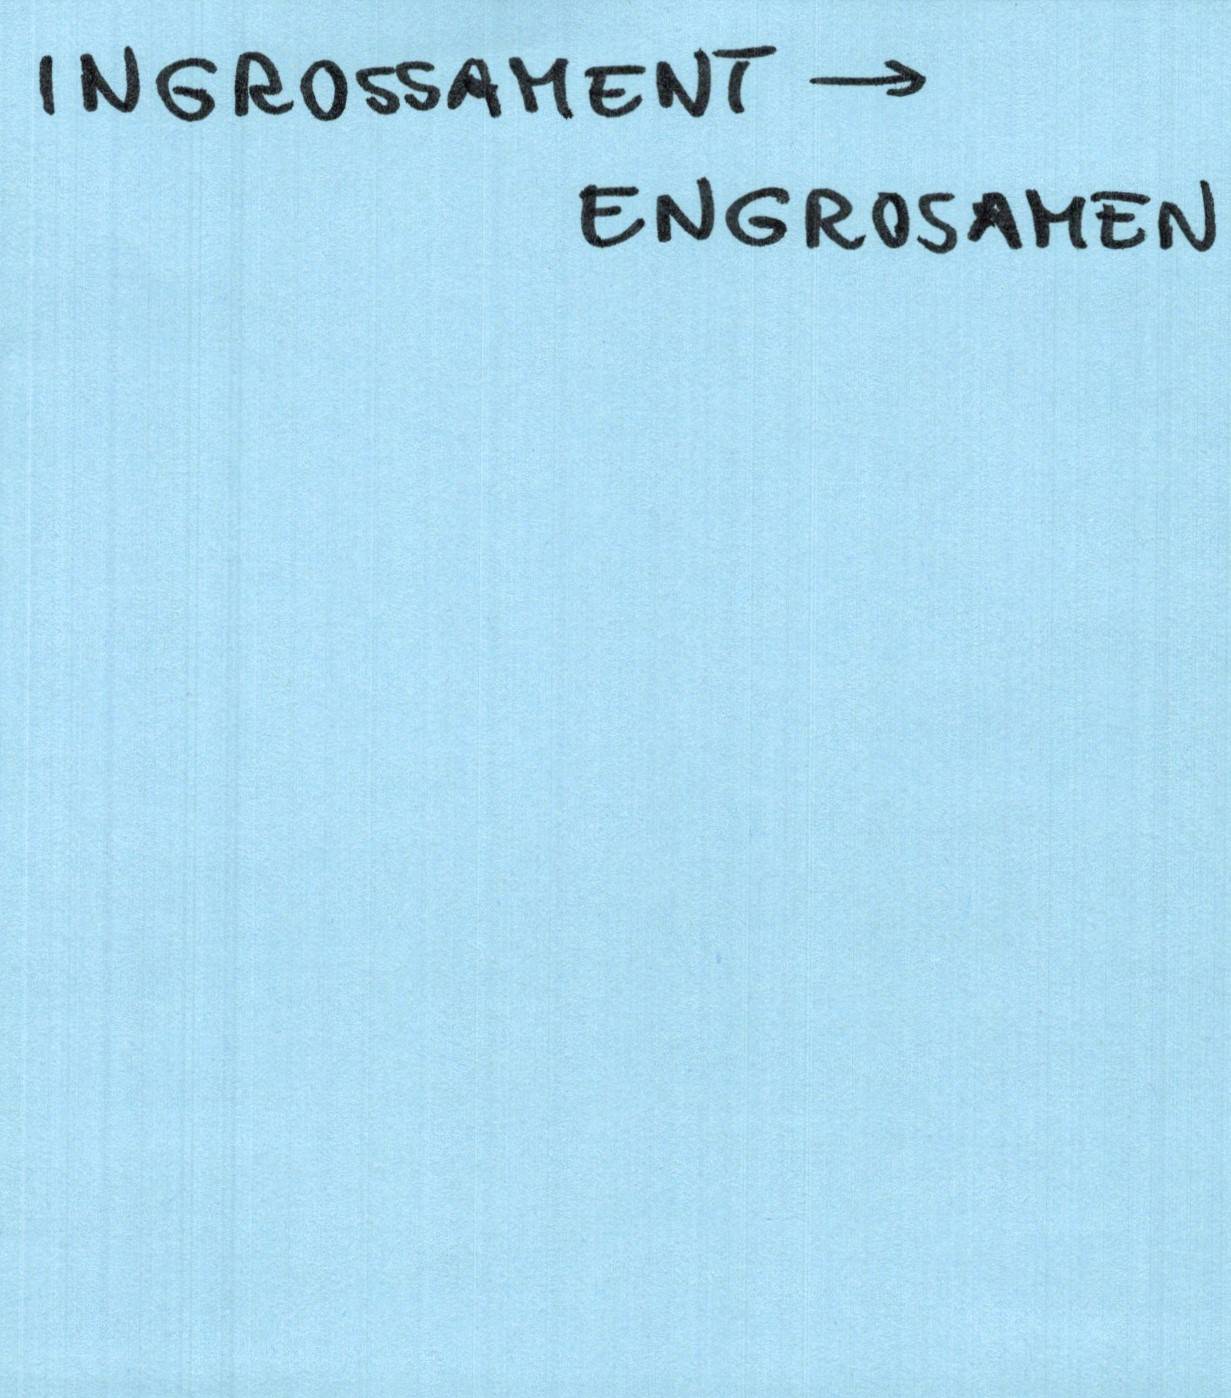 INGROSSAMENT →
ENGROSAMEN